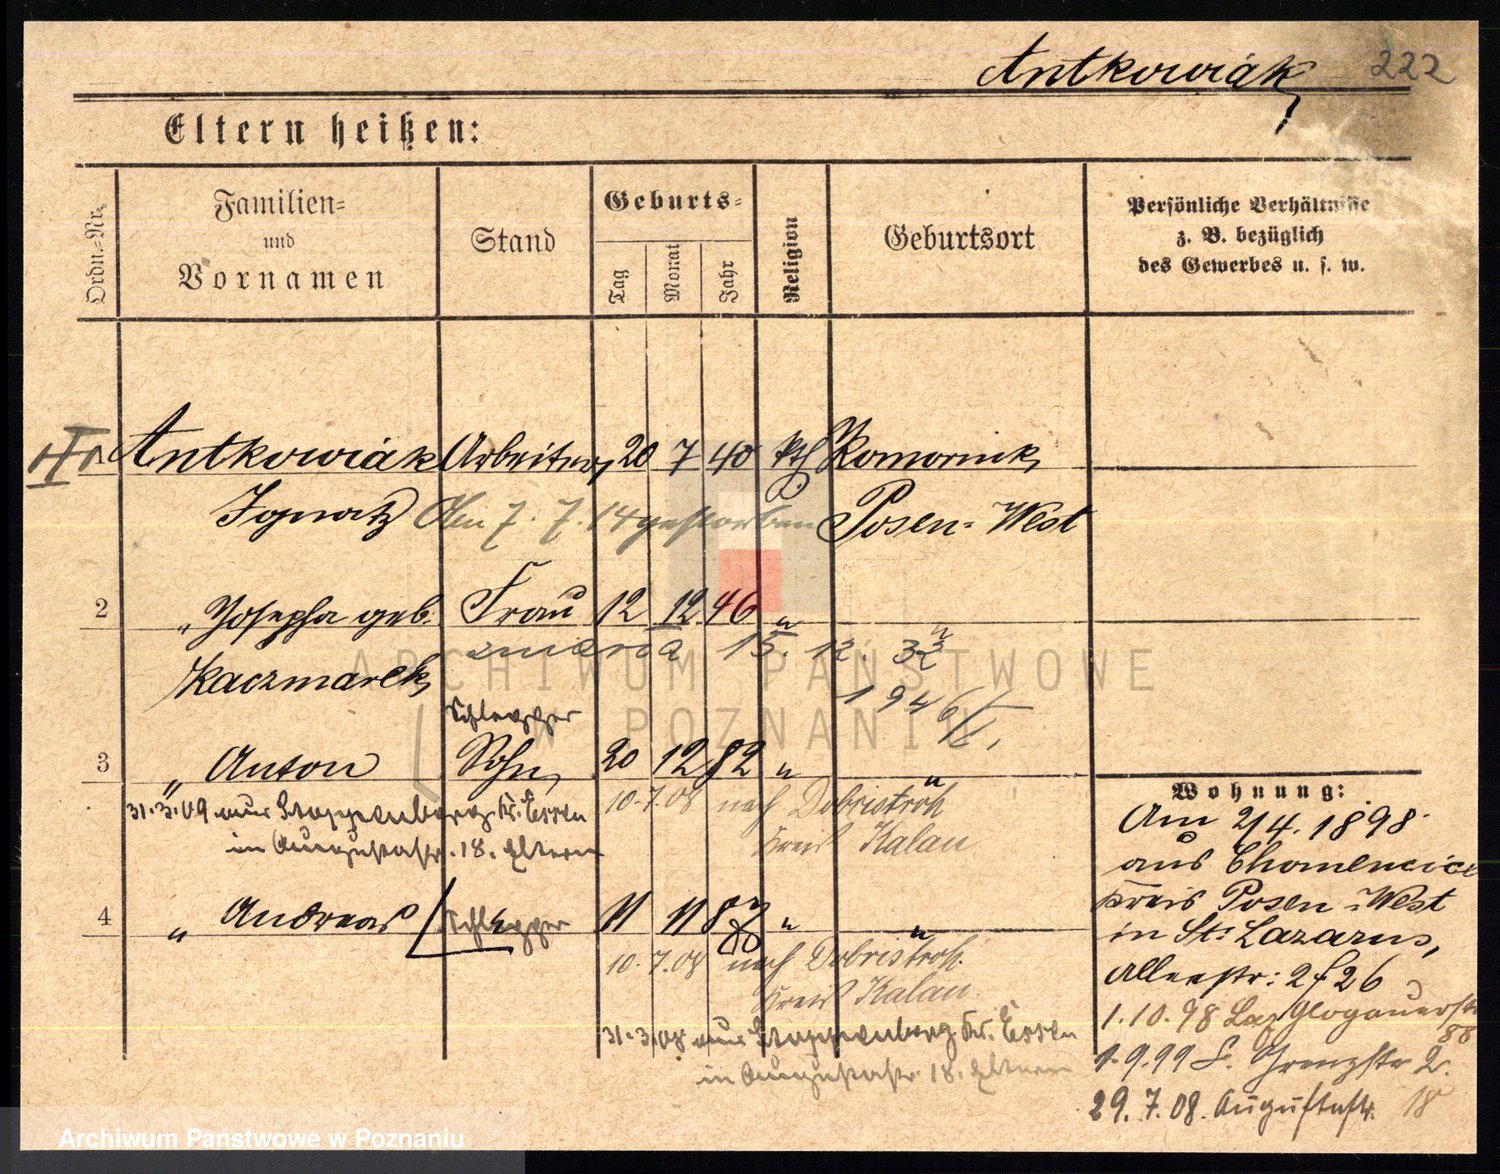 Antkowiak 222
Eltern heißen:
Ordn.=Nr.
Familien=
und
Vornamen
Stand
Geburts=
Tag
Monat
Jahr
Religion
Geburtsort
Persönliche Verhältnisse
z. B. bezüglich
des Gewerbes u. s. w.
Antkowiak Arbeiter, 20 7 40 kth Komornik,
Ignatz den 7. 7. 14 gestorben Posen-West
2 " Josepha geb. Frau 12 12 46 " "
zmarła 15. 12. 32
Kaczmarek,
1946/I,
Schlepper
3 " Anton Sohn, 20 12 82 " "
31.3.09 aus Stoppenberg Kr. Essen
in Augustastr. 18. Eltern
10.7.08 nach Dobristroh
Kreis Kalau
4 " Andreas Schlepper 11 11 87 " "
88
10.7.08 nach Dobristroh.
Kreis Kalau.
31.3.08 aus Stoppenberg Kr. Essen
in Augustastr. 18. Eltern
Wohnung:
Am 2/4. 1898.
aus Chomencice
Kreis Posen-West
in St. Lazarus,
Alleestr: 25/26
1.10.98 Laz. Glogauerstr
88
1.9.99 Grenzstr 2.
29.7.08. Augustastr. 18
ARCHIWUM PAŃSTWOWE
W POZNANIU
Archiwum Państwowe w Poznaniu